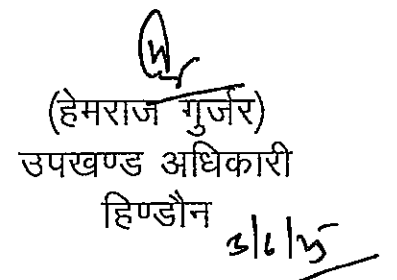 (हेमराज गुर्जर)
उपखण्ड अधिकारी
हिण्डौन
3/6/25